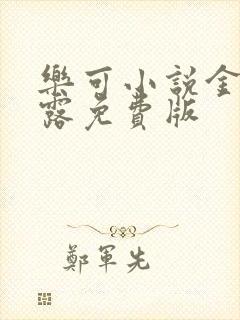 樂可小説金
露免費版
鄭軍先